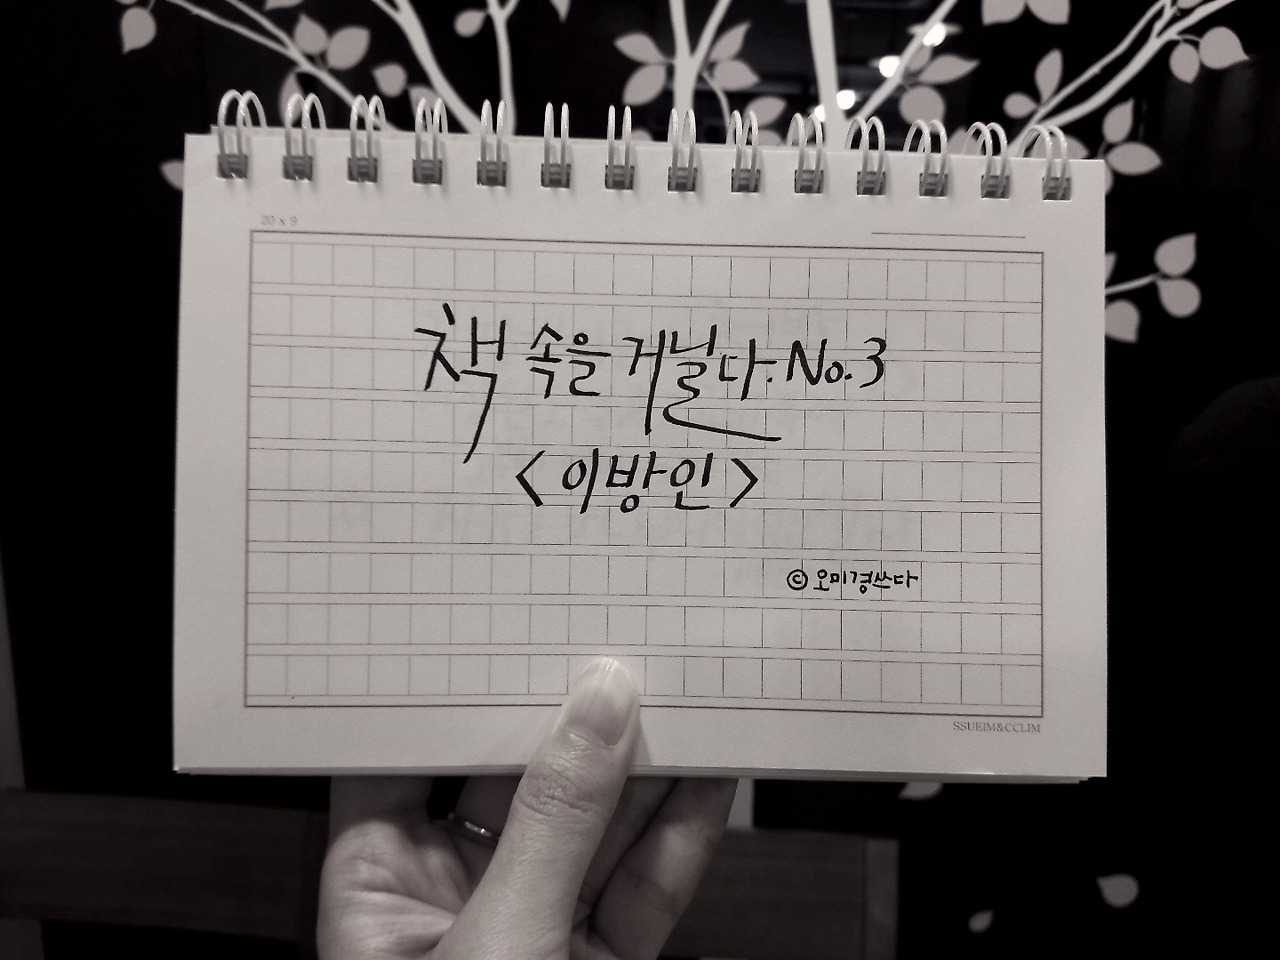 20 x 9
책 속을 거닐다. No.3
<이방인>
© 오미경쓰다
SSUEIM&CCLIM